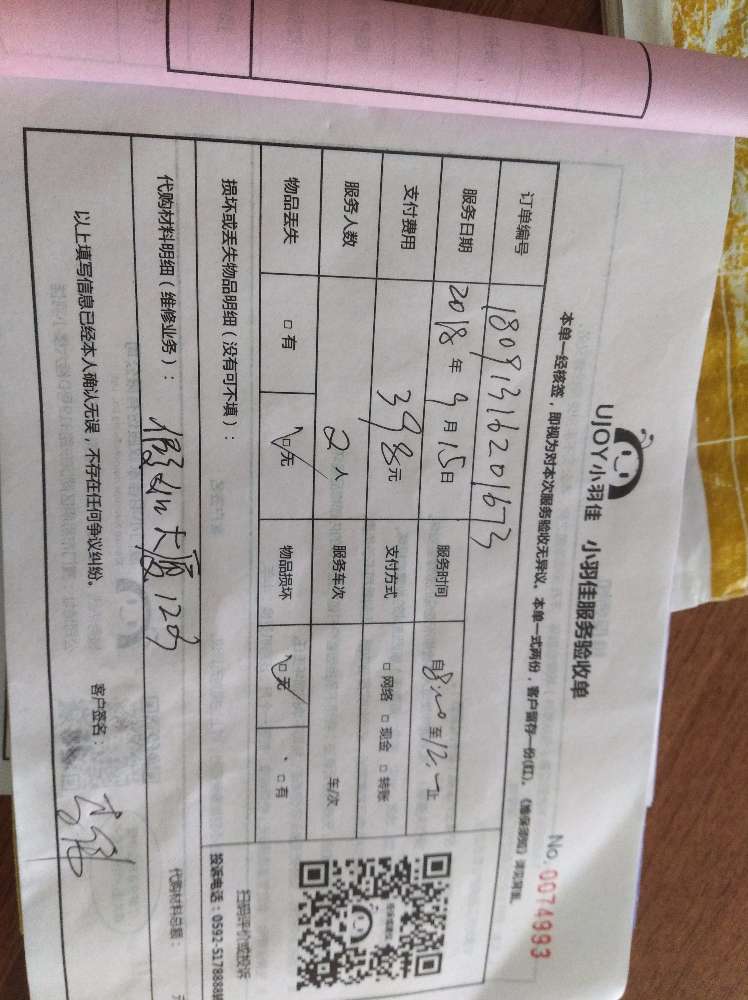 UJOY小羽佳 小羽佳服务验收单
No.0074993
本单一经核签，即视为对本次服务验收无异议。本单一式两份，客户留存一份(红)。
订单编号 18091316201673
服务日期 2018年9月15日 服务时间 自8:00至12:一止
支付费用 398元 支付方式 □网络 □现金 □转账
服务人数 2人 服务车次 车/次
物品丢失 □有 □无 物品损坏 □无 □有
损坏或丢失物品明细（没有可不填）：
扫码评价或投诉
投诉电话：0592-5178888
代购材料明细（维修业务）： 大厦1203
代购材料总额： 元
以上填写信息已经本人确认无误，不存在任何争议纠纷。 客户签名：